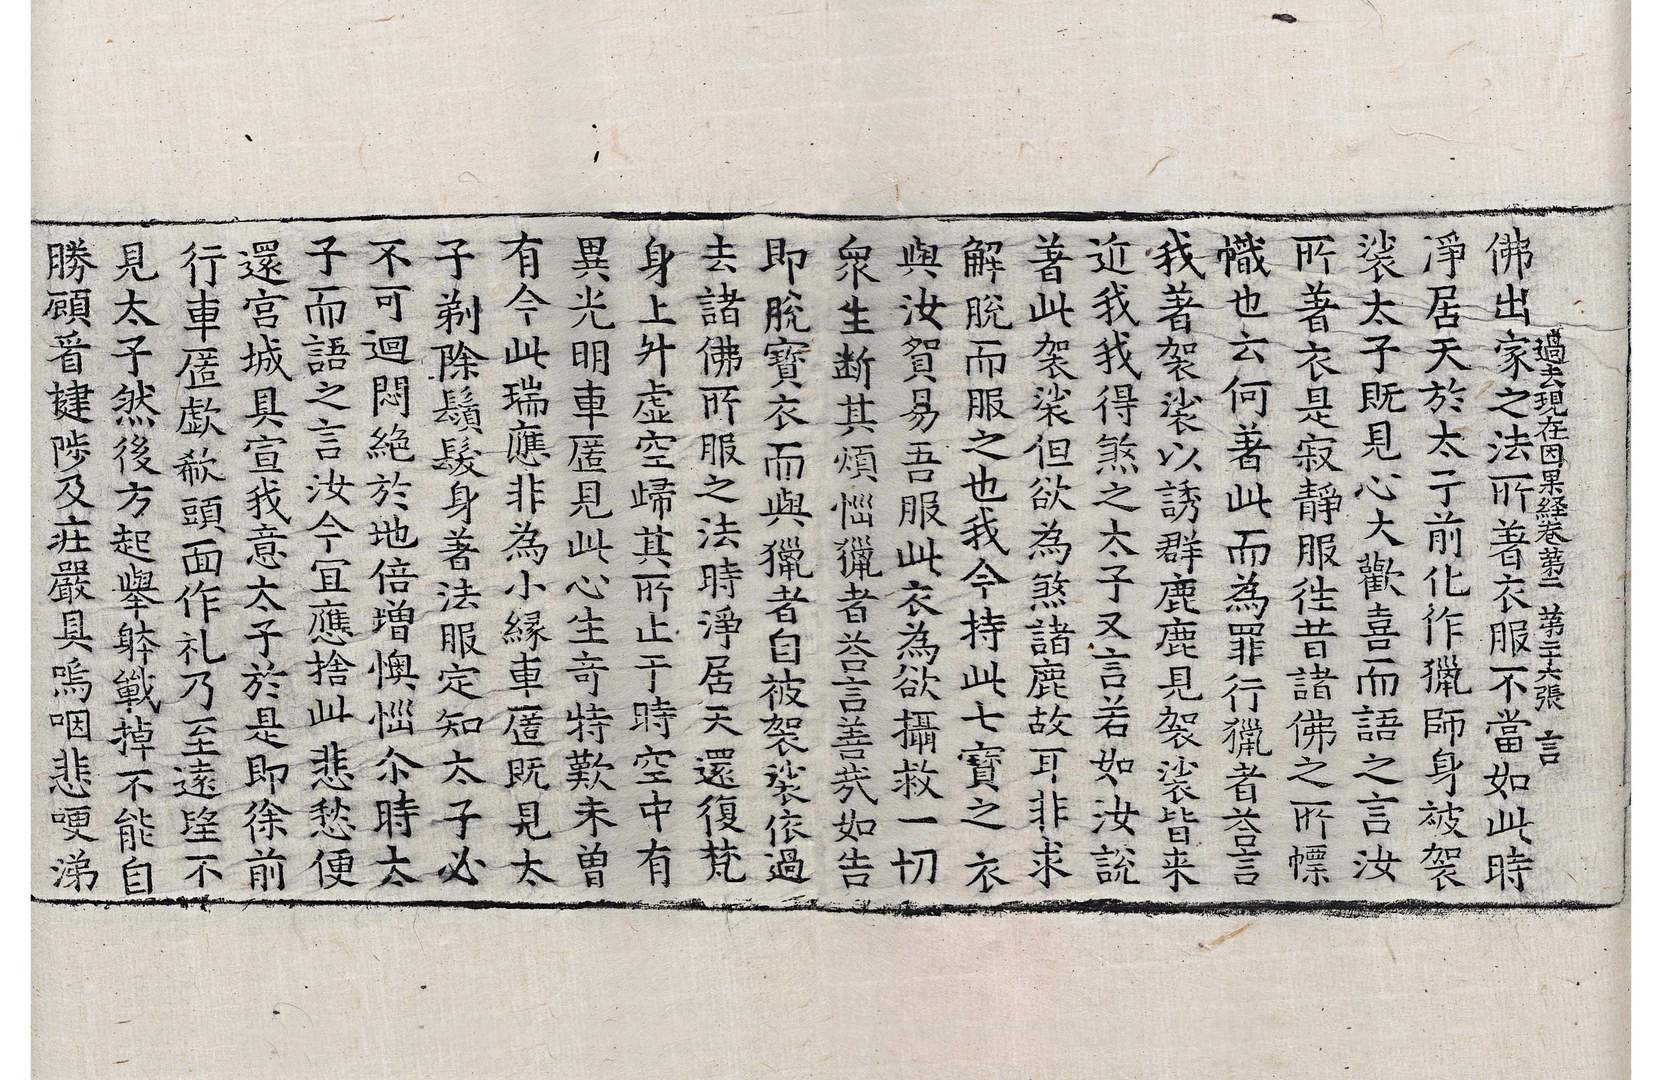 過去現在因果経卷第二 第三十六張 言
佛出家之法所著衣服不當如此時
淨居天於太子前化作獵師身被袈
裟太子既見心大歡喜而語之言汝
所著衣是寂靜服徃昔諸佛之所幖
幟也云何著此而為罪行獵者荅言
我著袈裟以誘群鹿鹿見袈裟皆来
近我我得煞之太子又言若如汝說
著此袈裟但欲為煞諸鹿故耳非求
解脫而服之也我今持此七寶之衣
與汝貿易吾服此衣為欲攝救一切
衆生断其煩惱獵者荅言善哉如告
即脫寶衣而與獵者自被袈裟依過
去諸佛所服之法時淨居天還復梵
身上昇虛空歸其所止于時空中有
異光明車匿見此心生奇特歎未曾
有今此瑞應非為小緣車匿既見太
子剃除鬚髮身著法服定知太子必
不可迴悶絕於地倍增懊惱尒時太
子而語之言汝今宜應捨此悲愁便
還宮城具宣我意太子於是即徐前
行車匿歔欷頭面作礼乃至遠望不
見太子然後方起舉躰戰掉不能自
勝顧看揵陟及庄嚴具嗚咽悲哽涕